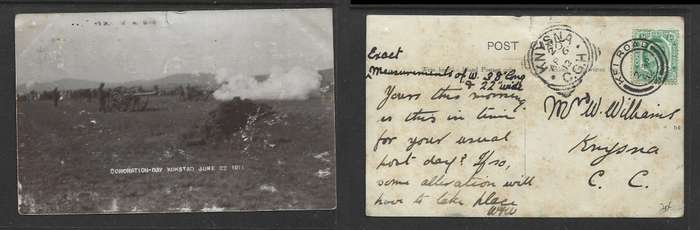 CORONATION-DAY KOKSTAD JUNE 22 1911
POST
Exact
Measurements of W. 38 long
& 22 wide
Yours this morning
is this in time
for your usual
post day? If so,
some alteration will
have to take place
WHW
KNYSNA
C.G.H
KEI ROAD
Mrs W. Williams
Knysna
C. C.